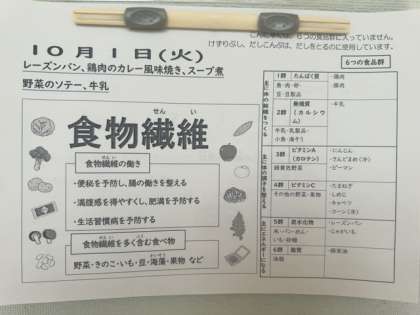 は、6つの食品群に入っていません。
けずりぶし、だしこんぶは、だしをとるのに使用しています。
10月1日(火)
レーズンパン、鶏肉のカレー風味焼き、スープ煮
野菜のソテー、牛乳
せんい
食物繊維
食物繊維の働き
・便秘を予防し、腸の働きを整える
・満腹感を得やすくし、肥満を予防する
・生活習慣病を予防する
食物繊維を多く含む食べ物
野菜・きのこ・いも・豆・海藻・果物 など
6つの食品群
1群 たんぱく質
魚・肉・卵・
豆・豆製品
・鶏肉
・豚肉
2群 無機質
(カルシウム)
牛乳・乳製品・
小魚・海そう
・牛乳
3群 ビタミンA
(カロテン)
緑黄色野菜
・にんじん
・さんどまめ(冷)
・ピーマン
4群 ビタミンC
その他の野菜・果物
・たまねぎ
・しめじ
・キャベツ
・コーン(冷)
5群 炭水化物
米・パン・めん・
いも・砂糖
・レーズンパン
・じゃがいも
6群 脂質
油脂
・綿実油